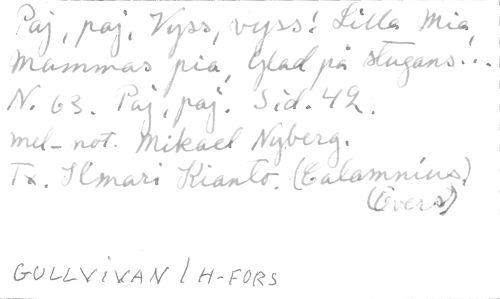 Paj, paj. Vyss, vyss! Lilla Mia,
Mammas pia, Glad på stugans...
N. 63. Paj, paj. Sid. 42.
mel-not. Mikael Nyberg.
Tx. Ilmari Kianto. (Calamnius).
(Övers)
GULLVIVAN / H-FORS